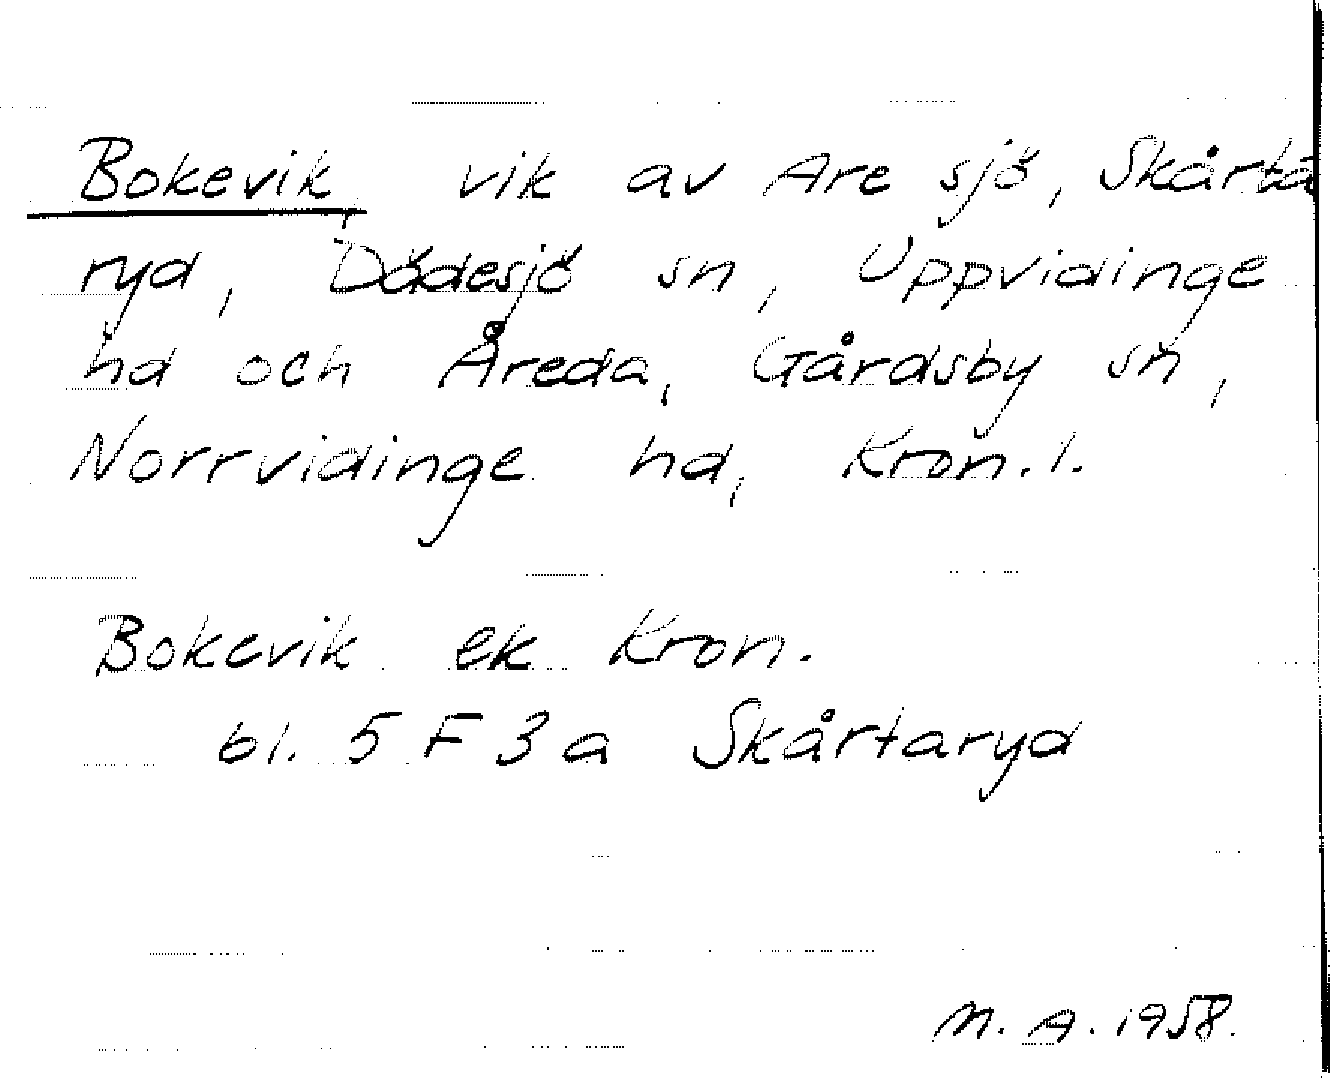 Bokevik, vik av Are sjö, Skårta
ryd, Dädesjö sn, Uppvidinge
hd och Åreda, Gårdsby sn,
Norrvidinge hd, Kron. l.
Bokevik ek Kron.
bl. 5 F 3 a Skårtaryd
M. A. 1958.